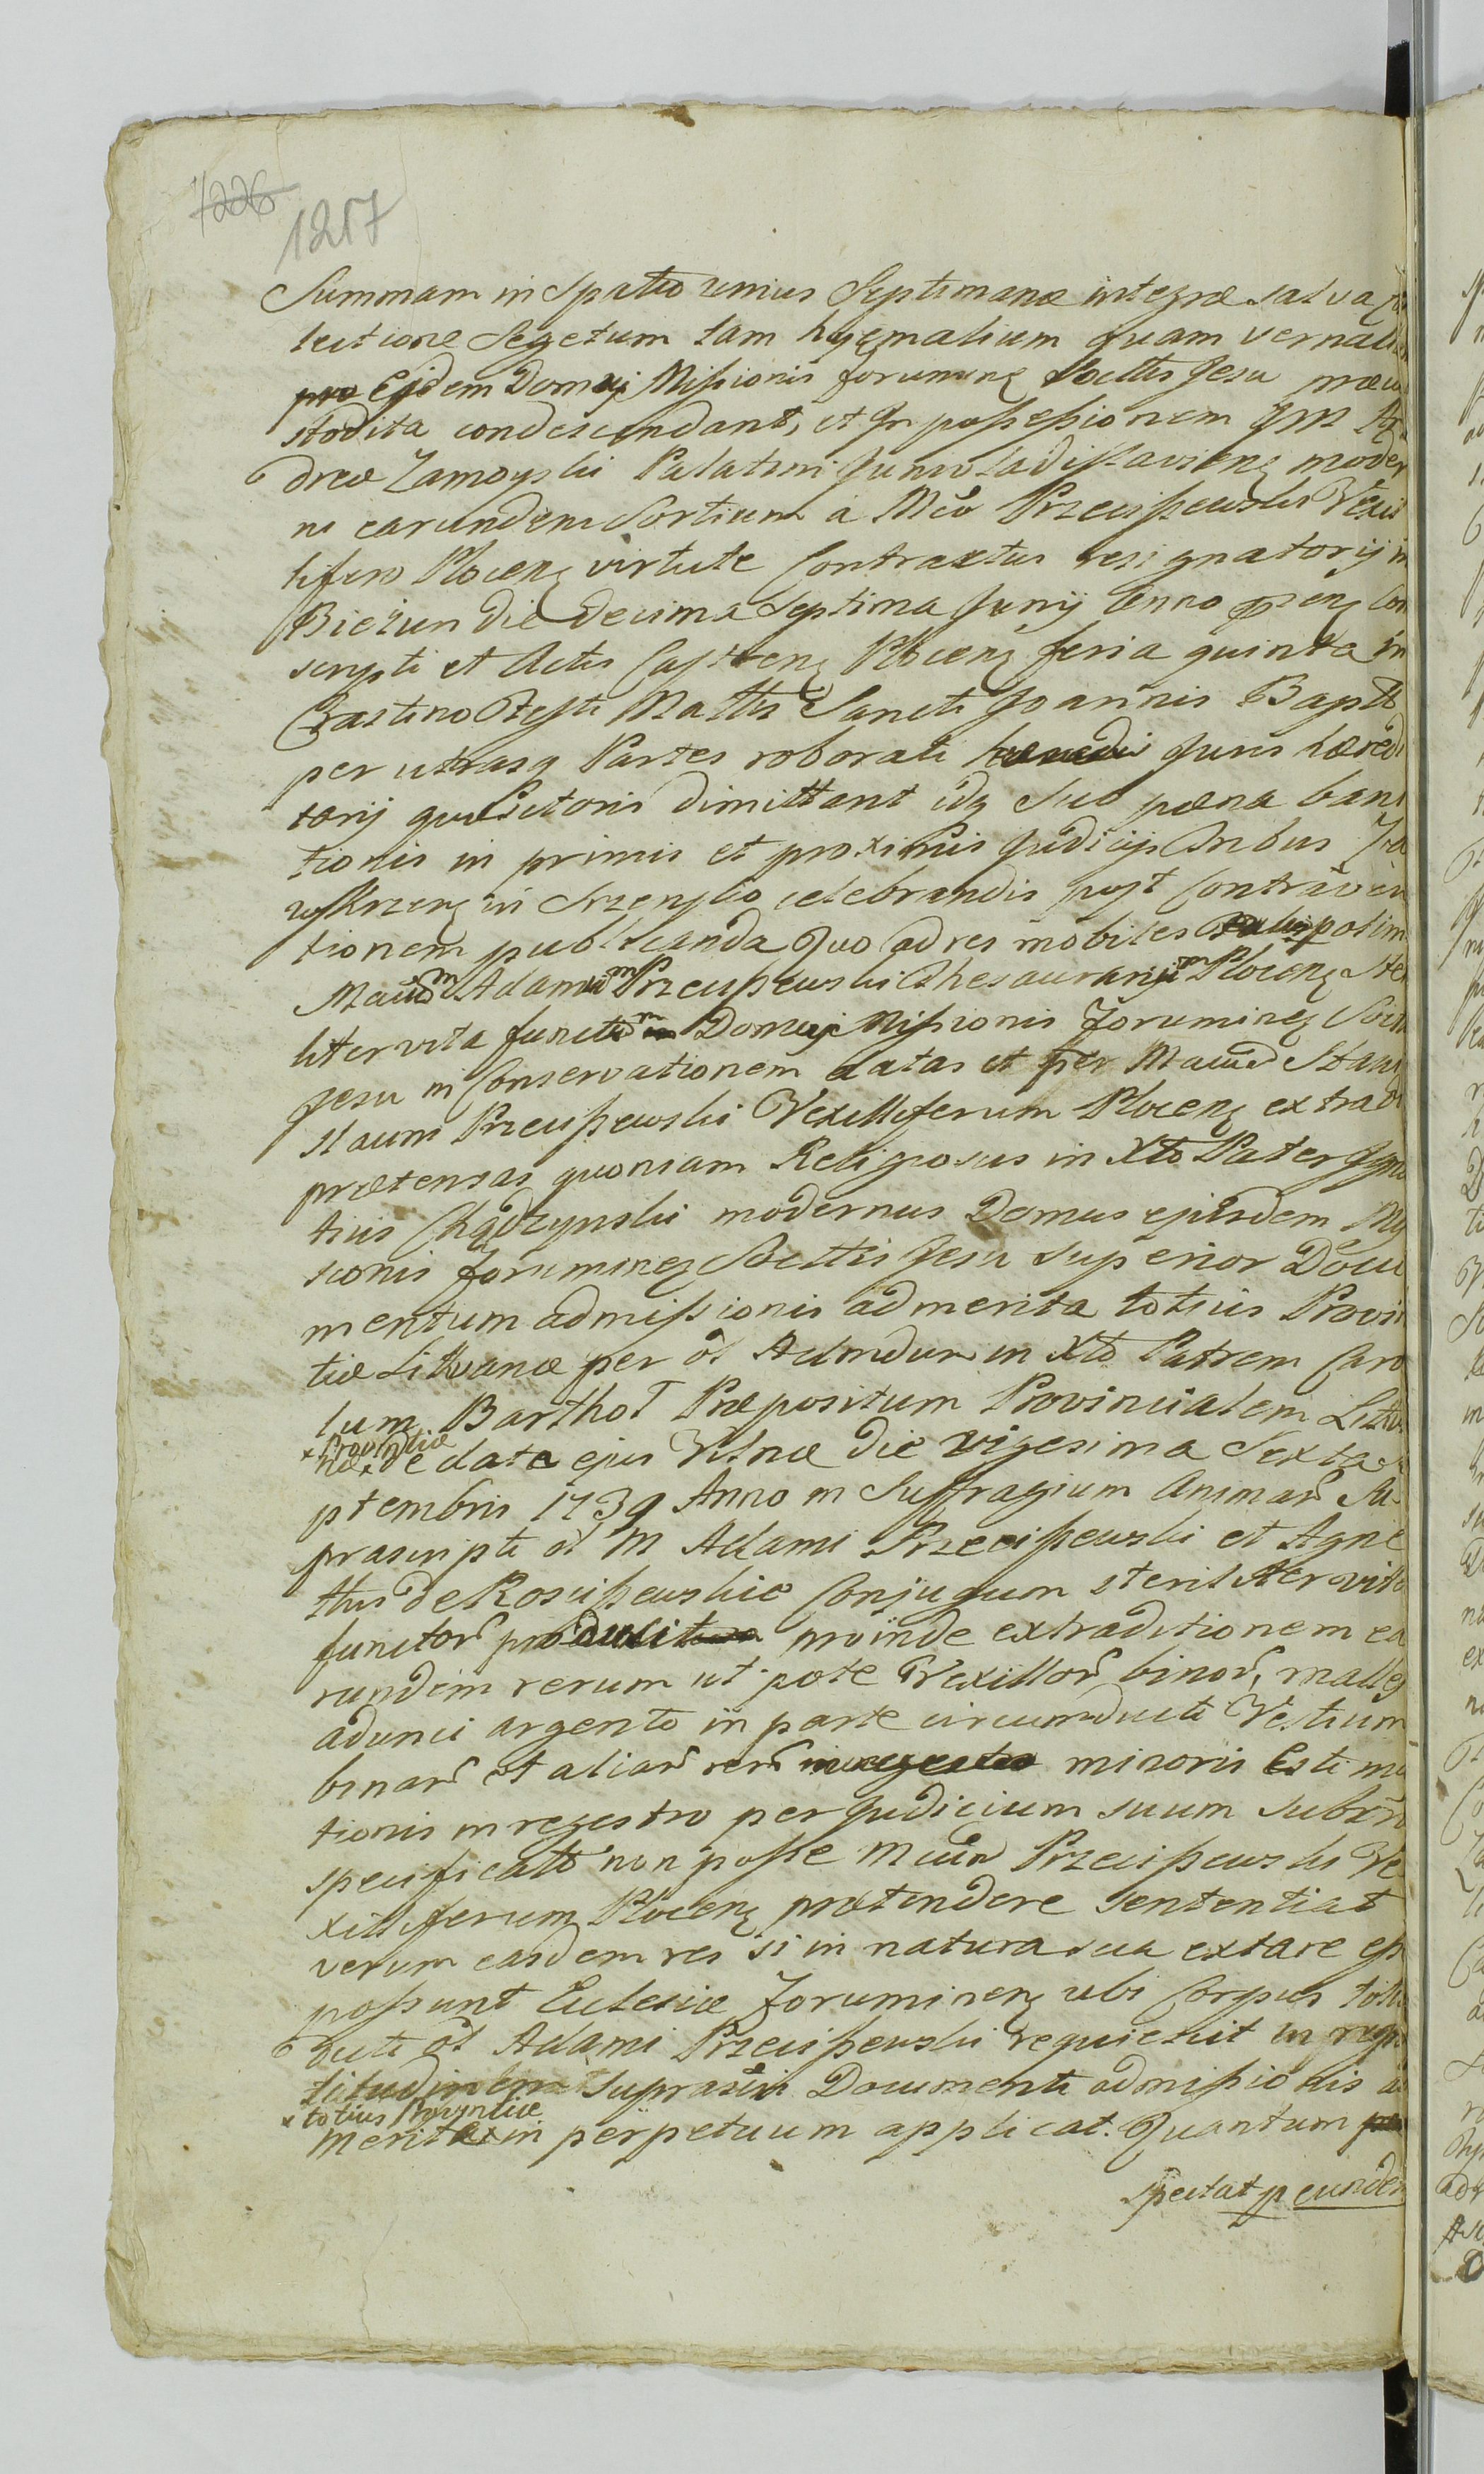 7226
1217
Summam in Spatio unius Septimanæ integræ salva
lectione Segetum tam hyemalium quam vernali
pro Ejdem Domui Missionis Foruminen Soctis Jesu præcu
stodita condescendant, et In possessionem JM An
dreæ Zamoyski Palatini Juniwladislaviens moder
ni earundem Sortium a Mco Przeciszewski Vexil
lifero Plocens virtute Contractus resignatorij in
Bieżun die decima Septima Junij Anno præns Con
scripti et Actis Castrens Plocens feria quinta in
Crastino Festi Nattis Sancti Joannis Baptæ
per utrasq Partes roborati Juris hæredi
tarij quæsitoris dimittant idq sub pæna bani
tionis in primis et proximis Judicijs Tribus Za
wskrzens in Szrensko celebrandis post Contraven
tionem publicanda Quo ad res mobiles olim
Mcum Adamum Przeciszewski Thesaurarium Plocens ste
liter vita functum Domui Missionis Foruminens Soctis
Jesu in Conservationem datas et per Mcum Stani
slaum Przeciszewski Vexilliferum Plocens extradi
prætensas, quoniam Religiosus in Xto Pater Igna
tius Chądzynski modernus Domus ejusdem Mis
sionis Foruminens Soctis Jesu Superior Docu
mentum admissionis ad merita totius Provin
tiæ Lithvanæ per ol Admdum in Xto Patrem Caro
lum Barthol Præpositum Provincialem Lithva
× Provintiæ
næ × de data ejus Vilnæ die vigesima Sexta Se
ptembris 1739 Anno in Suffragium Animar Su
prascripti ol M Adami Przeciszewski et Agne
this de Rosciszewskie Conjugum sterilliter vita
functor produxit proinde extraditionem ea
rundem rerum ut pote Vexillor binor, mallei
adunci argento in parte circumducti Vestium
binar et aliar rer minoris Estima
tionis in regestro per Judicium suum subscr
specificatto non posse Mcum Przeciszewski Ve
xilliferum Plocens prætendere sententiat
verum easdem res si in natura sua extare
possunt Ecclesiæ Foruminens ubi Corpus
ducti ol Adami Przeciszewski requiescit in
titudinem Suprascri Documenti admissionis ad
× totius Provyntiæ
merita × in perpetuum applicat. Quantum
Spectat p eundem